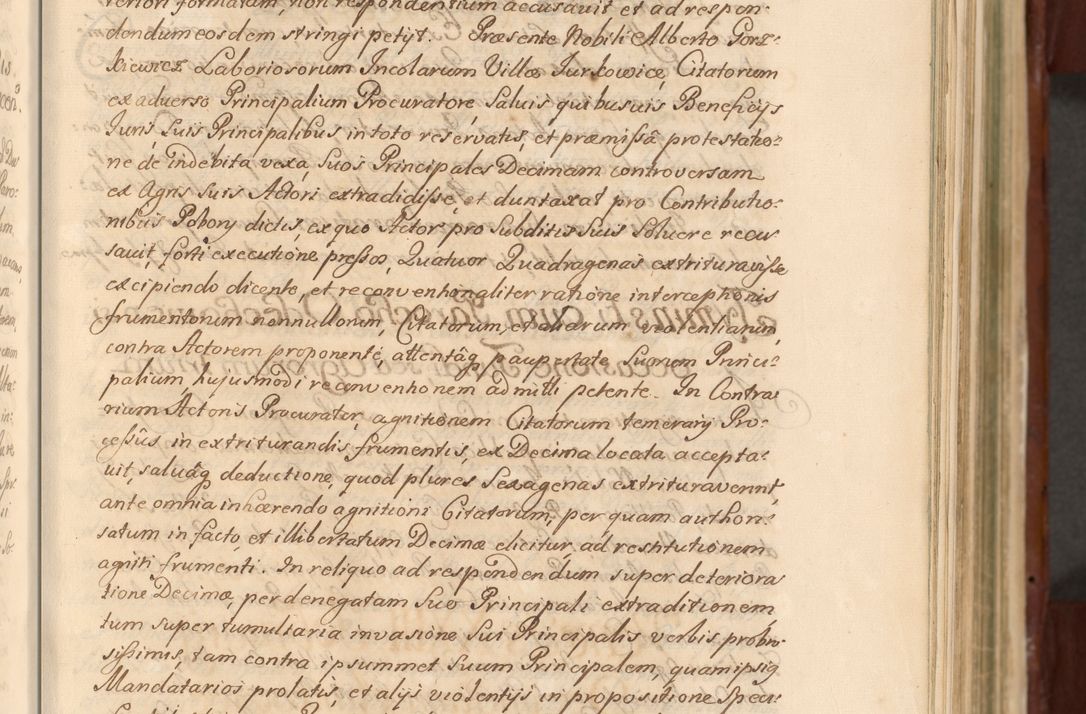 teriori formatam, non respondentium accusavit et ad respon-
dendum eosdem stringi petijt. Præsente Nobili Alberto Gorz-
kiewicz Laboriosorum Incolarum Villæ Jurkowice, Citatorum
ex adverso Principalium Procuratore Salvis quibusvis Beneficijs
Juris Suis Principalibus in toto reservatis, et præmissâ protestatio-
ne de indebita vexa, Suos Principales Decimam controversam
ex Agris Suis Actori extradidisse, et duntaxat pro Contributio-
nibus Pobory dictis, ex quo Actor pro Subditis Suis Solvere recu-
savit, forti executione pressos, Quatuor Quadragenas extrituravisse
excipiendo dicente, et reconventionaliter ratione interceptionis
frumentorum nonnullorum, Citatorum, et aliarum violentiarum,
contra Actorem proponente, attentâq paupertate Suorum Princi-
palium hujusmodi reconventionem admitti petente. In Contra-
rium Actoris Procurator, agnitionem Citatorum temerarij Pro-
cessûs in extriturandis frumentis, ex Decima locata accepta-
vit, salvâq deductione, quod plures Sexagenas extrituraverint,
ante omnia inhærendo agnitioni Citatorum, per quam authori-
satum in facto, et illibertatum Decimæ elicitur, ad restitutionem
agniti frumenti. In reliquo ad respondendum super deteriora
tione Decimæ, per denegatam Suo Principali extraditionem
tum super tumultaria invasione Sui Principalis verbis probro-
sissimis, tam contra ipsummet Suum Principalem, quam ipsiq
Mandatarios prolatis, et alijs violentijs in propositione Speci-